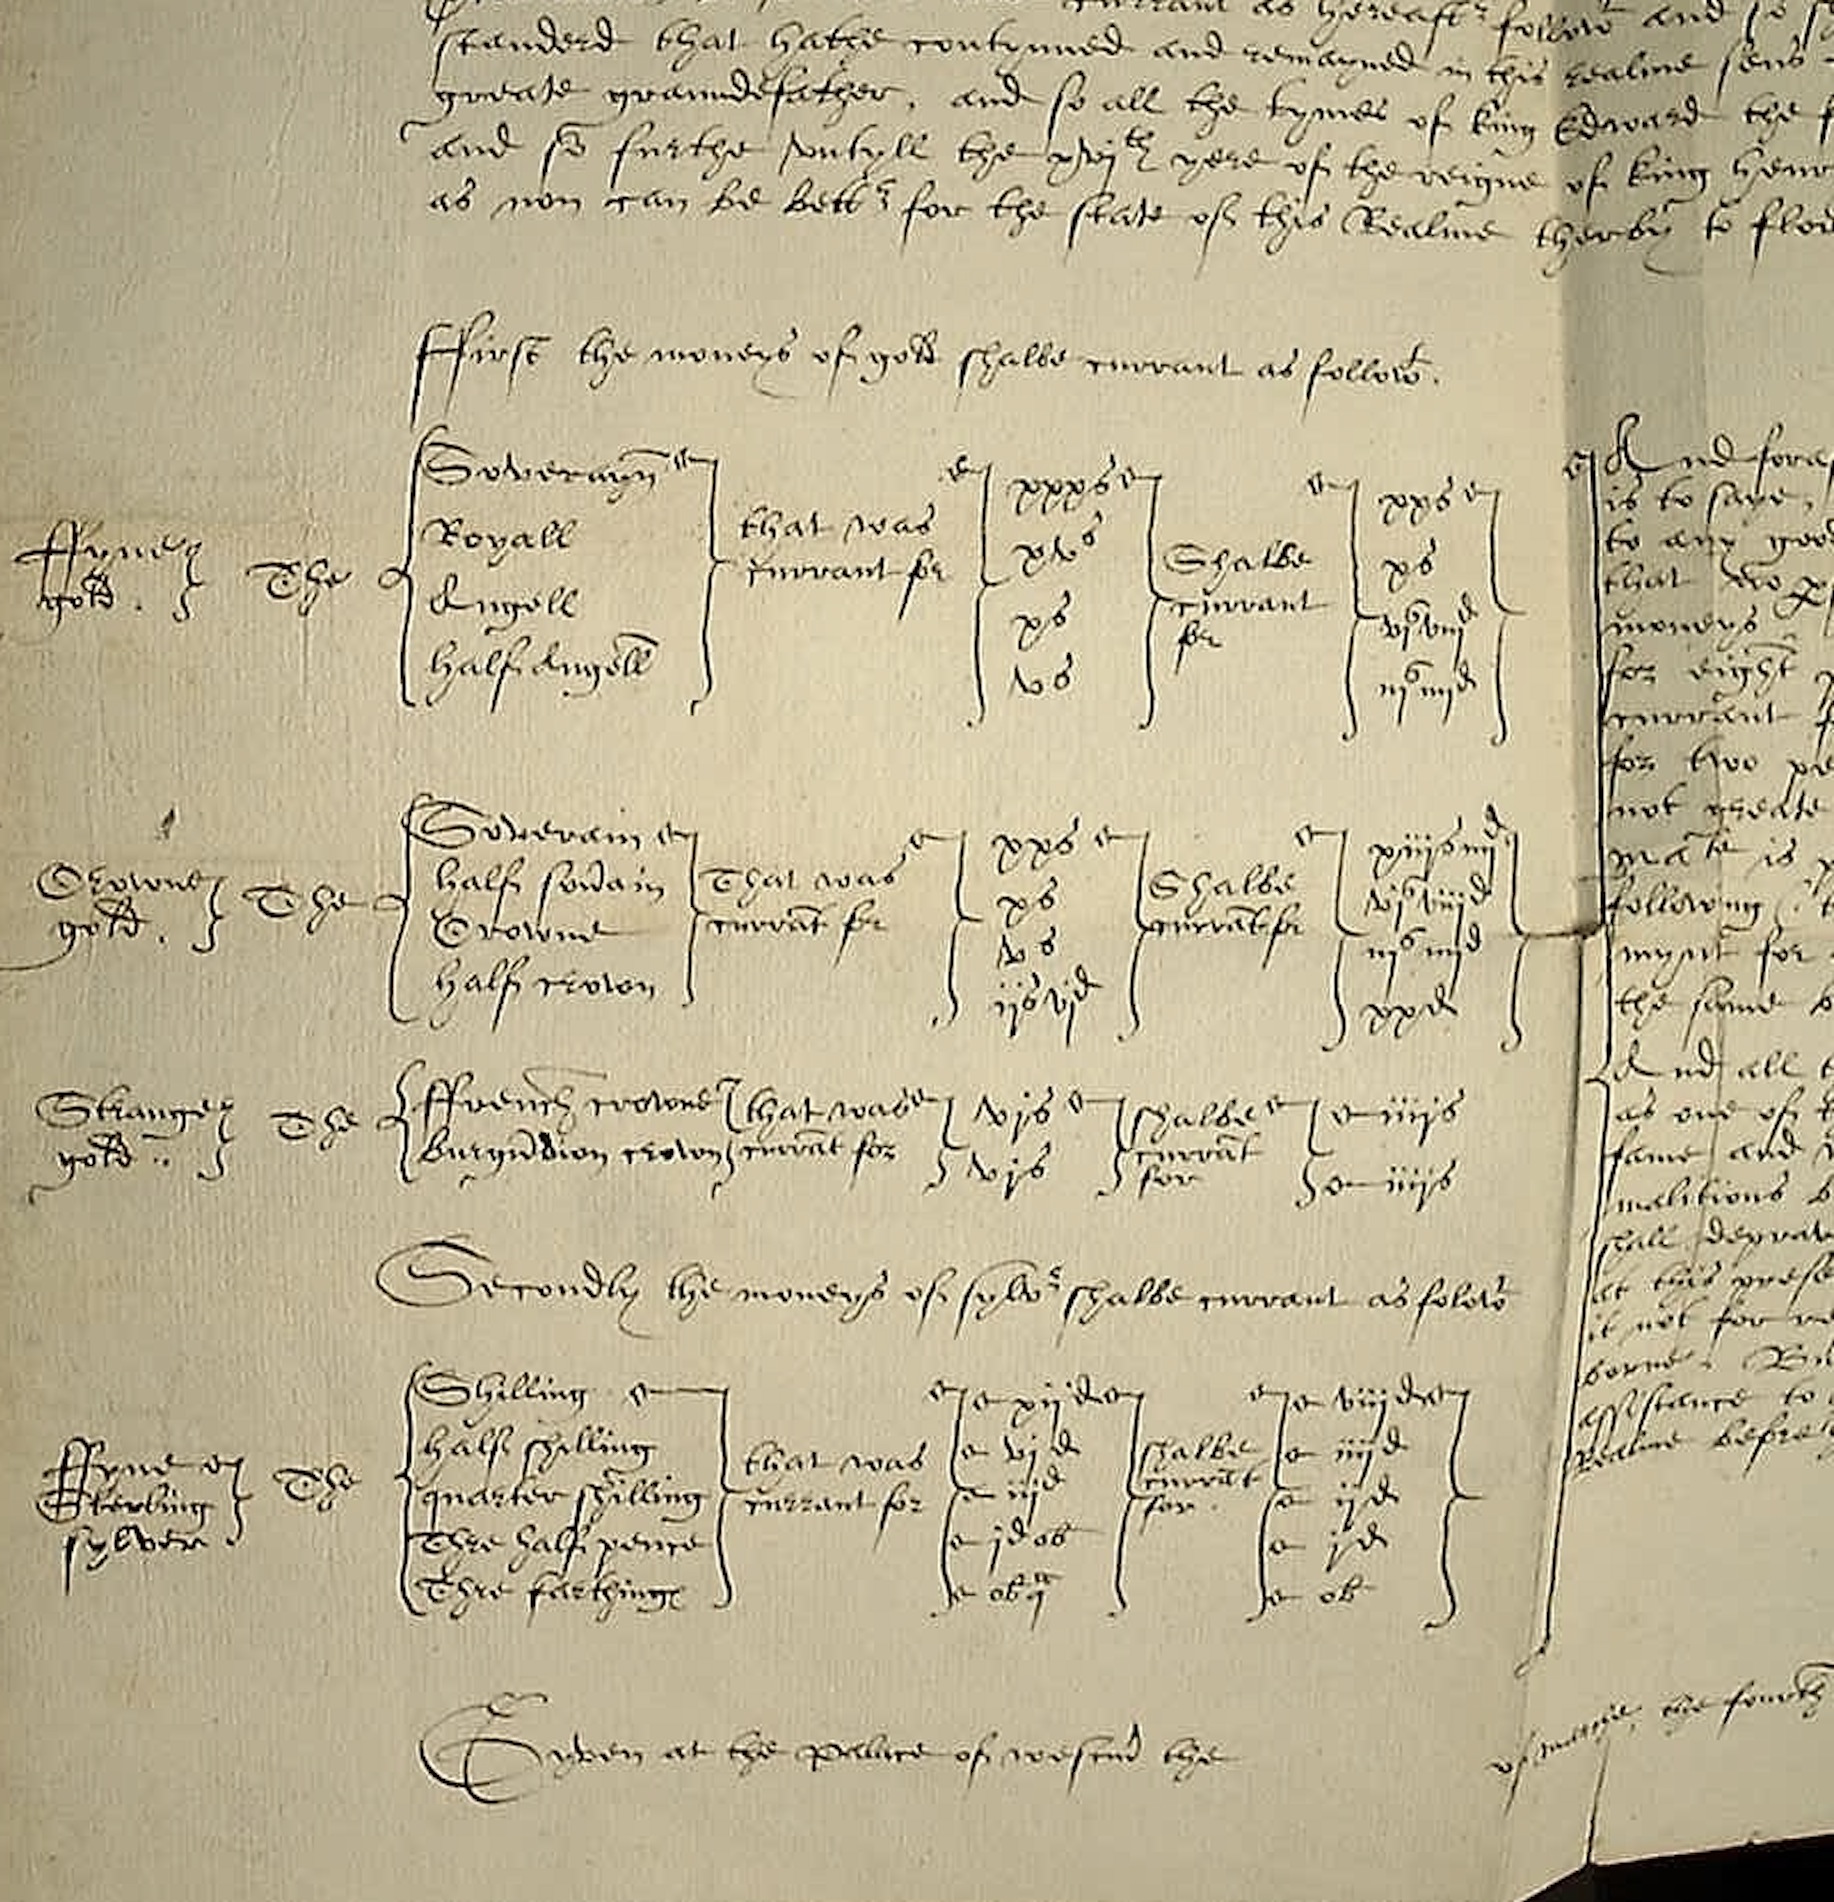 currant as hereaftr folow and so
standerd that hathe contynued and remayned in this realme sens
greate graundefather, and so all the tymes of king Edward the
and so furthe untyll the xvjth yere of the reigne of king Henr
as non can be bettr for the state of this Realme therby to
ffirst the moneys of gold shalbe currant as follow.
ffyne gold. The
Soverayn
Royall
Angell
half Angell
that was currant for
xxxs
xvs
xs
vs
Shalbe currant for
xxs
xs
vjs viijd
iijs iiijd
Crowne gold. The
Soverain
half sovrain
Crowne
half crown
That was currat for
xxs
xs
vs
ijs vjd
Shalbe currat for
xiijs iiijd
vjs viijd
iijs iiijd
xxd
Strange gold. The
ffrench crowne
burgundion crown
that was currat for
vjs
vjs
shalbe currat for
iiijs
iiijs
Secondly the moneys of sylvr shalbe currant as folow
ffyne Sterling sylver. The
Shilling
half shilling
quarter shilling
Thre half pence
Thre farthing
that was currant for
xijd
vjd
iijd
jd ob
ob q
shalbe currat for.
viijd
iiijd
ijd
jd
ob
Gyven at the palace of westm the
And
is to saye,
to any
that
moneys
for eight
currant
for two
not greate
is
following
mynt for
the same
And all
as one of
fame and
malitious
shall deprav
at this prese
it not for
borne.
assistance to
Realme before
of the fourth